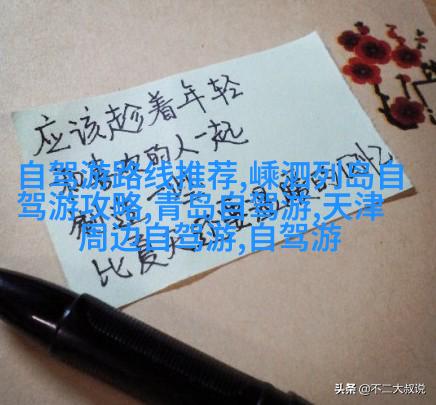 应该趁着年轻
和喜欢的人一起
自驾游路线推荐,嵊泗列岛自
驾游攻略,青岛自驾游,天津
周边自驾游,自驾游
比夏天还要温暖的回忆
头条 @不二大叔说